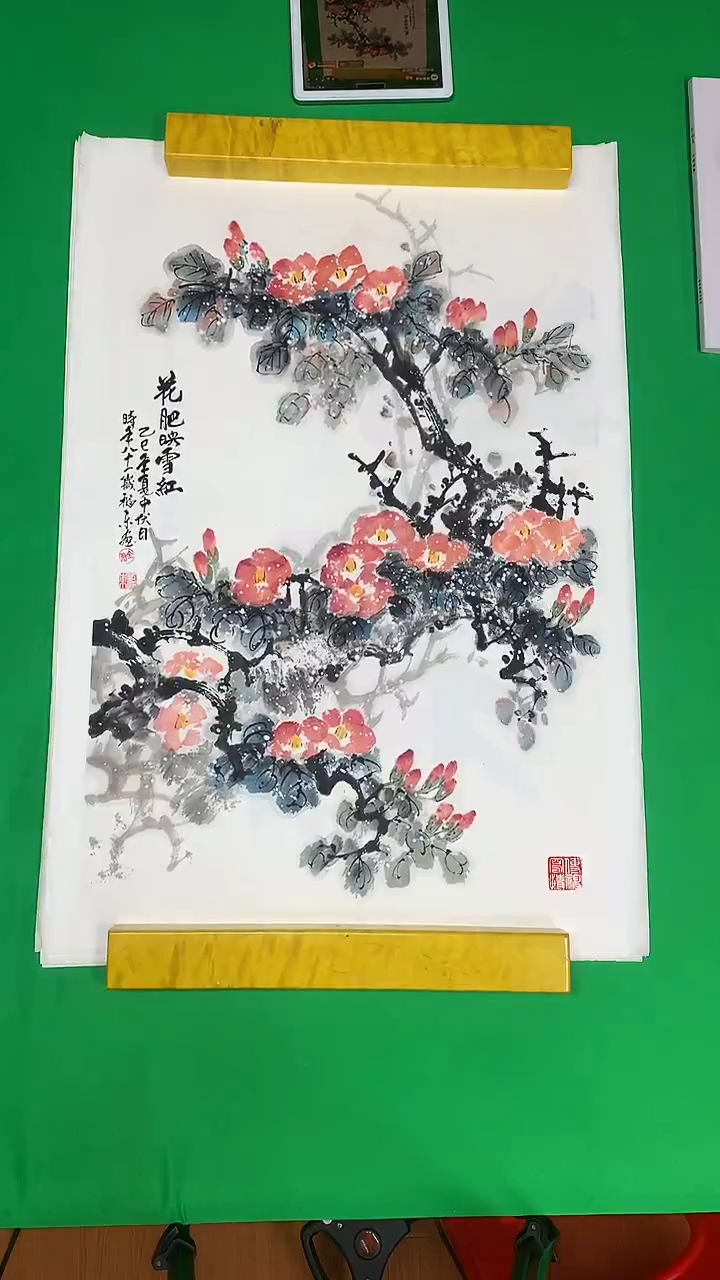 花肥映雪紅
乙巳年夏中伏日
時年八十一歲福東画